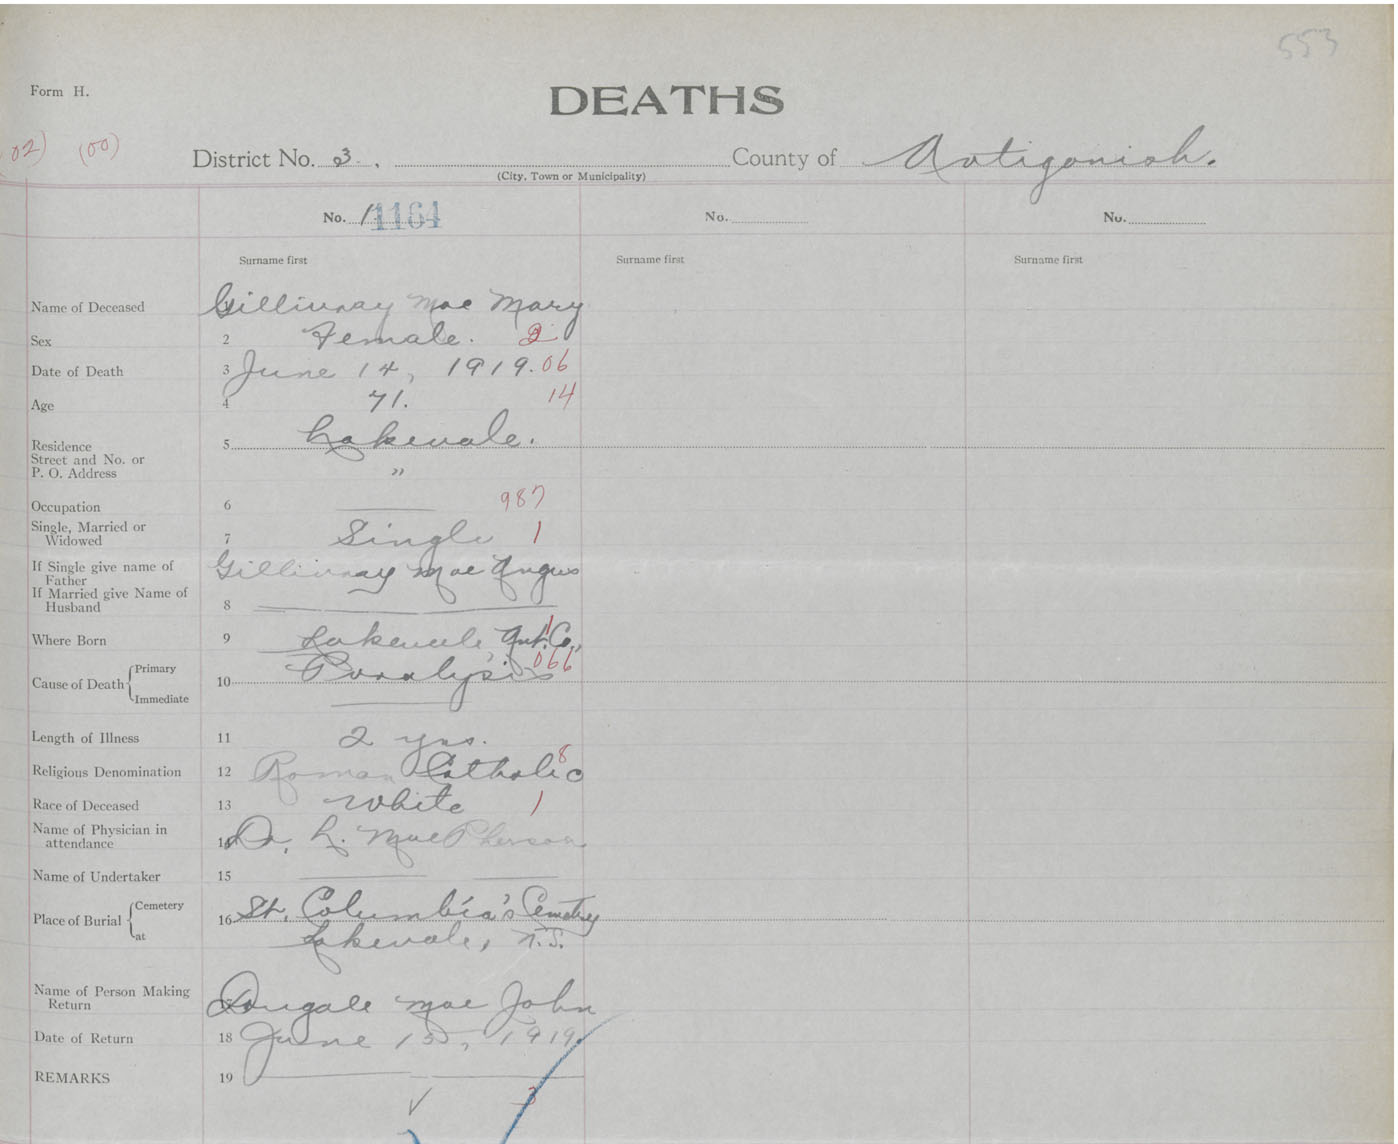 553
Form H.
DEATHS
02) (00)
District No. 3. County of Antigonish.
(City, Town or Municipality)
No. 1 1164 No. No.
Surname first Surname first Surname first
Name of Deceased Gillivray Mac Mary
Sex 2 Female. 2
Date of Death 3 June 14, 1919. 06
Age 4 71. 14
Residence 5 Lakevale.
Street and No. or
P. O. Address "
Occupation 6 987
Single, Married or
Widowed 7 Single 1
If Single give name of Gillivray Mac Angus
Father
If Married give Name of
Husband 8
Where Born 9 Lakevale, Ant. Co., 1
Cause of Death Primary 10 Paralysis 066
Immediate
Length of Illness 11 2 yrs.
Religious Denomination 12 Roman Catholic 8
Race of Deceased 13 White 1
Name of Physician in
attendance 14 Dr. L. MacPherson
Name of Undertaker 15
Place of Burial Cemetery 16 St. Columbia's Cemetry
at Lakevale, N.S.
Name of Person Making
Return Dougald Mac John
Date of Return 18 June 15, 1919.
REMARKS 19
3